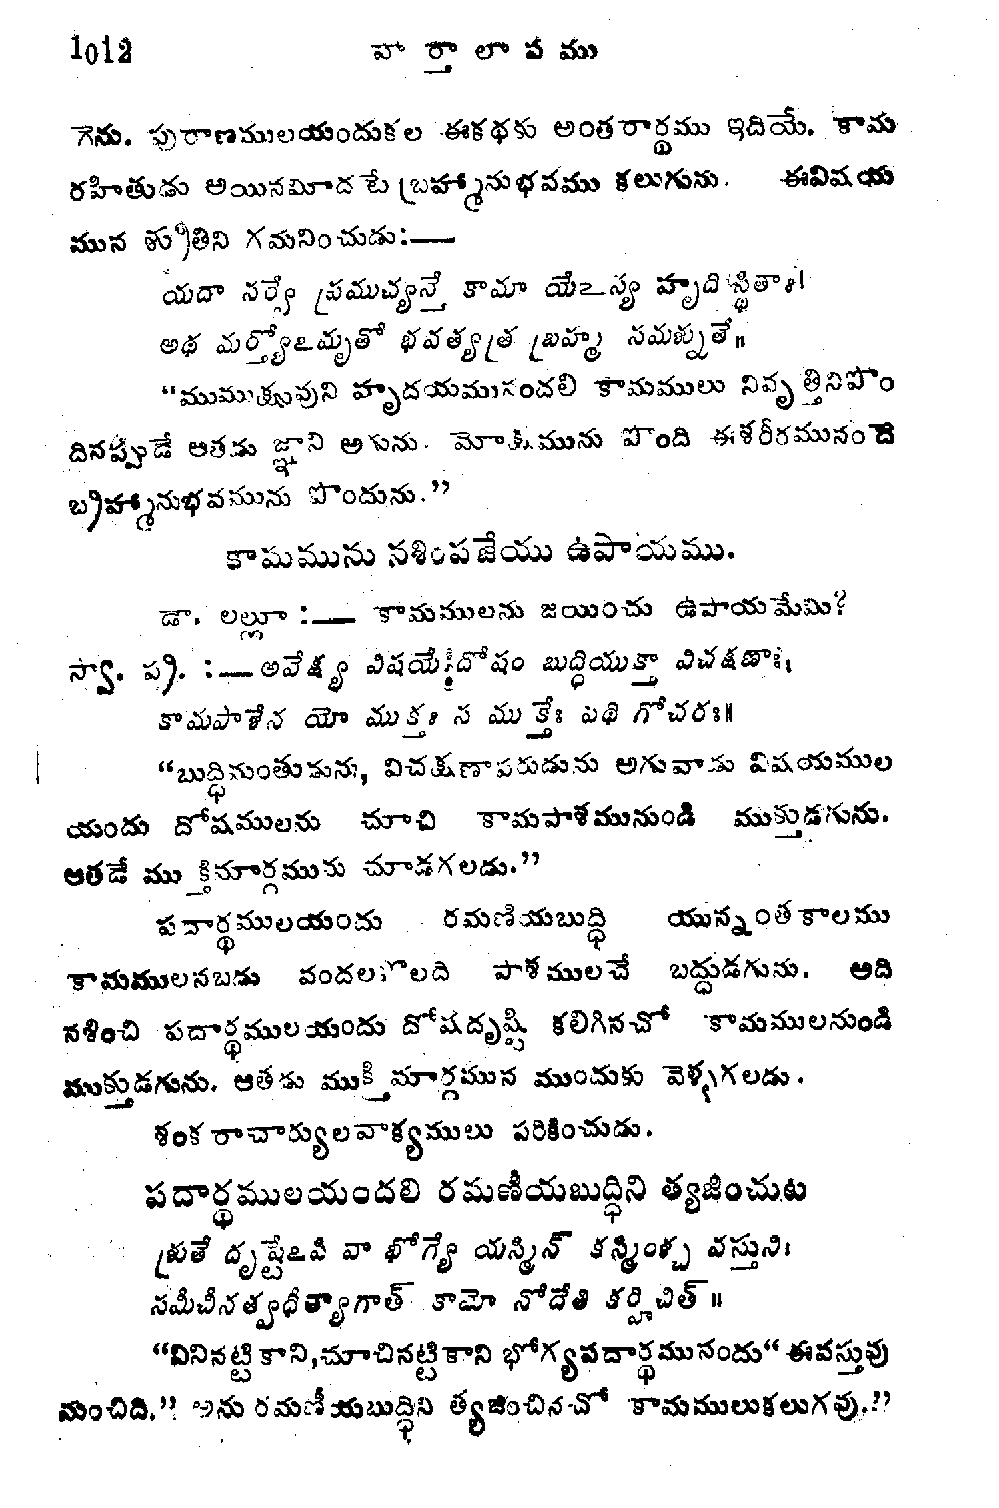 1012 వార్తాలాపము
గెను. పురాణములయందుకల ఈకథకు అంతరార్థము ఇదియే. కామ
రహితుడు అయినమీదటే బ్రహ్మానుభవము కలుగును. ఈవిషయ
మున శ్రుతిని గమనించుడు:—
యదా సర్వే ప్రముచ్యన్తే కామా యేఽస్య హృదిస్థితాః।
అథ మర్త్యోఽమృతో భవత్యత్ర బ్రహ్మ సమశ్నుతే॥
“ముముక్షువుని హృదయమునందలి కామములు నివృత్తినిపొం
దినప్పుడే ఆతడు జ్ఞాని అగును. మోక్షమును పొంది ఈశరీరమునందె
బ్రహ్మానుభవమును పొందును.”
కామమును నశింపజేయు ఉపాయము.
డా. లల్లూ :— కామములను జయించు ఉపాయమేమి?
స్వా. ప్ర. :— అవేక్ష్య విషయేదోషం బుద్ధియుక్తా విచక్షణాః,
కామపాశేన యో ముక్తః స ముక్తేః పథి గోచరః॥
“బుద్ధిమంతుడును, విచక్షణాపరుడును అగువాడు విషయముల
యందు దోషములను చూచి కామపాశమునుండి ముక్తుడగును.
ఆతడే ముక్తిమార్గమును చూడగలడు.”
పదార్థములయందు రమణీయబుద్ధి యున్నంతకాలము
కామములనబడు వందలకొలది పాశములచే బద్ధుడగును. అది
నశించి పదార్థములయందు దోషదృష్టి కలిగినచో కామములనుండి
ముక్తుడగును. ఆతడు ముక్తిమార్గమున ముందుకు వెళ్ళగలడు.
శంకరాచార్యులవాక్యములు పరికించుడు.
పదార్థములయందలి రమణీయబుద్ధిని త్యజించుట
శ్రుతే దృష్టేఽపి వా భోగ్యే యస్మిన్ కస్మింశ్చ వస్తుని।
సమీచీనత్వధీత్యాగాత్ కామో నోదేతి కర్హిచిత్॥
“వినినట్టికాని,చూచినట్టికాని భోగ్యపదార్థమునందు“ఈవస్తువు
మంచిది.” అను రమణీయబుద్ధిని త్యజించినచో కామములుకలుగవు.”